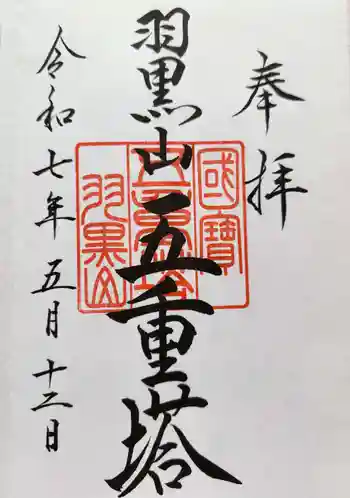 奉拝
羽黒山五重塔
令和七年五月十二日
國寶
五重塔
羽黒山